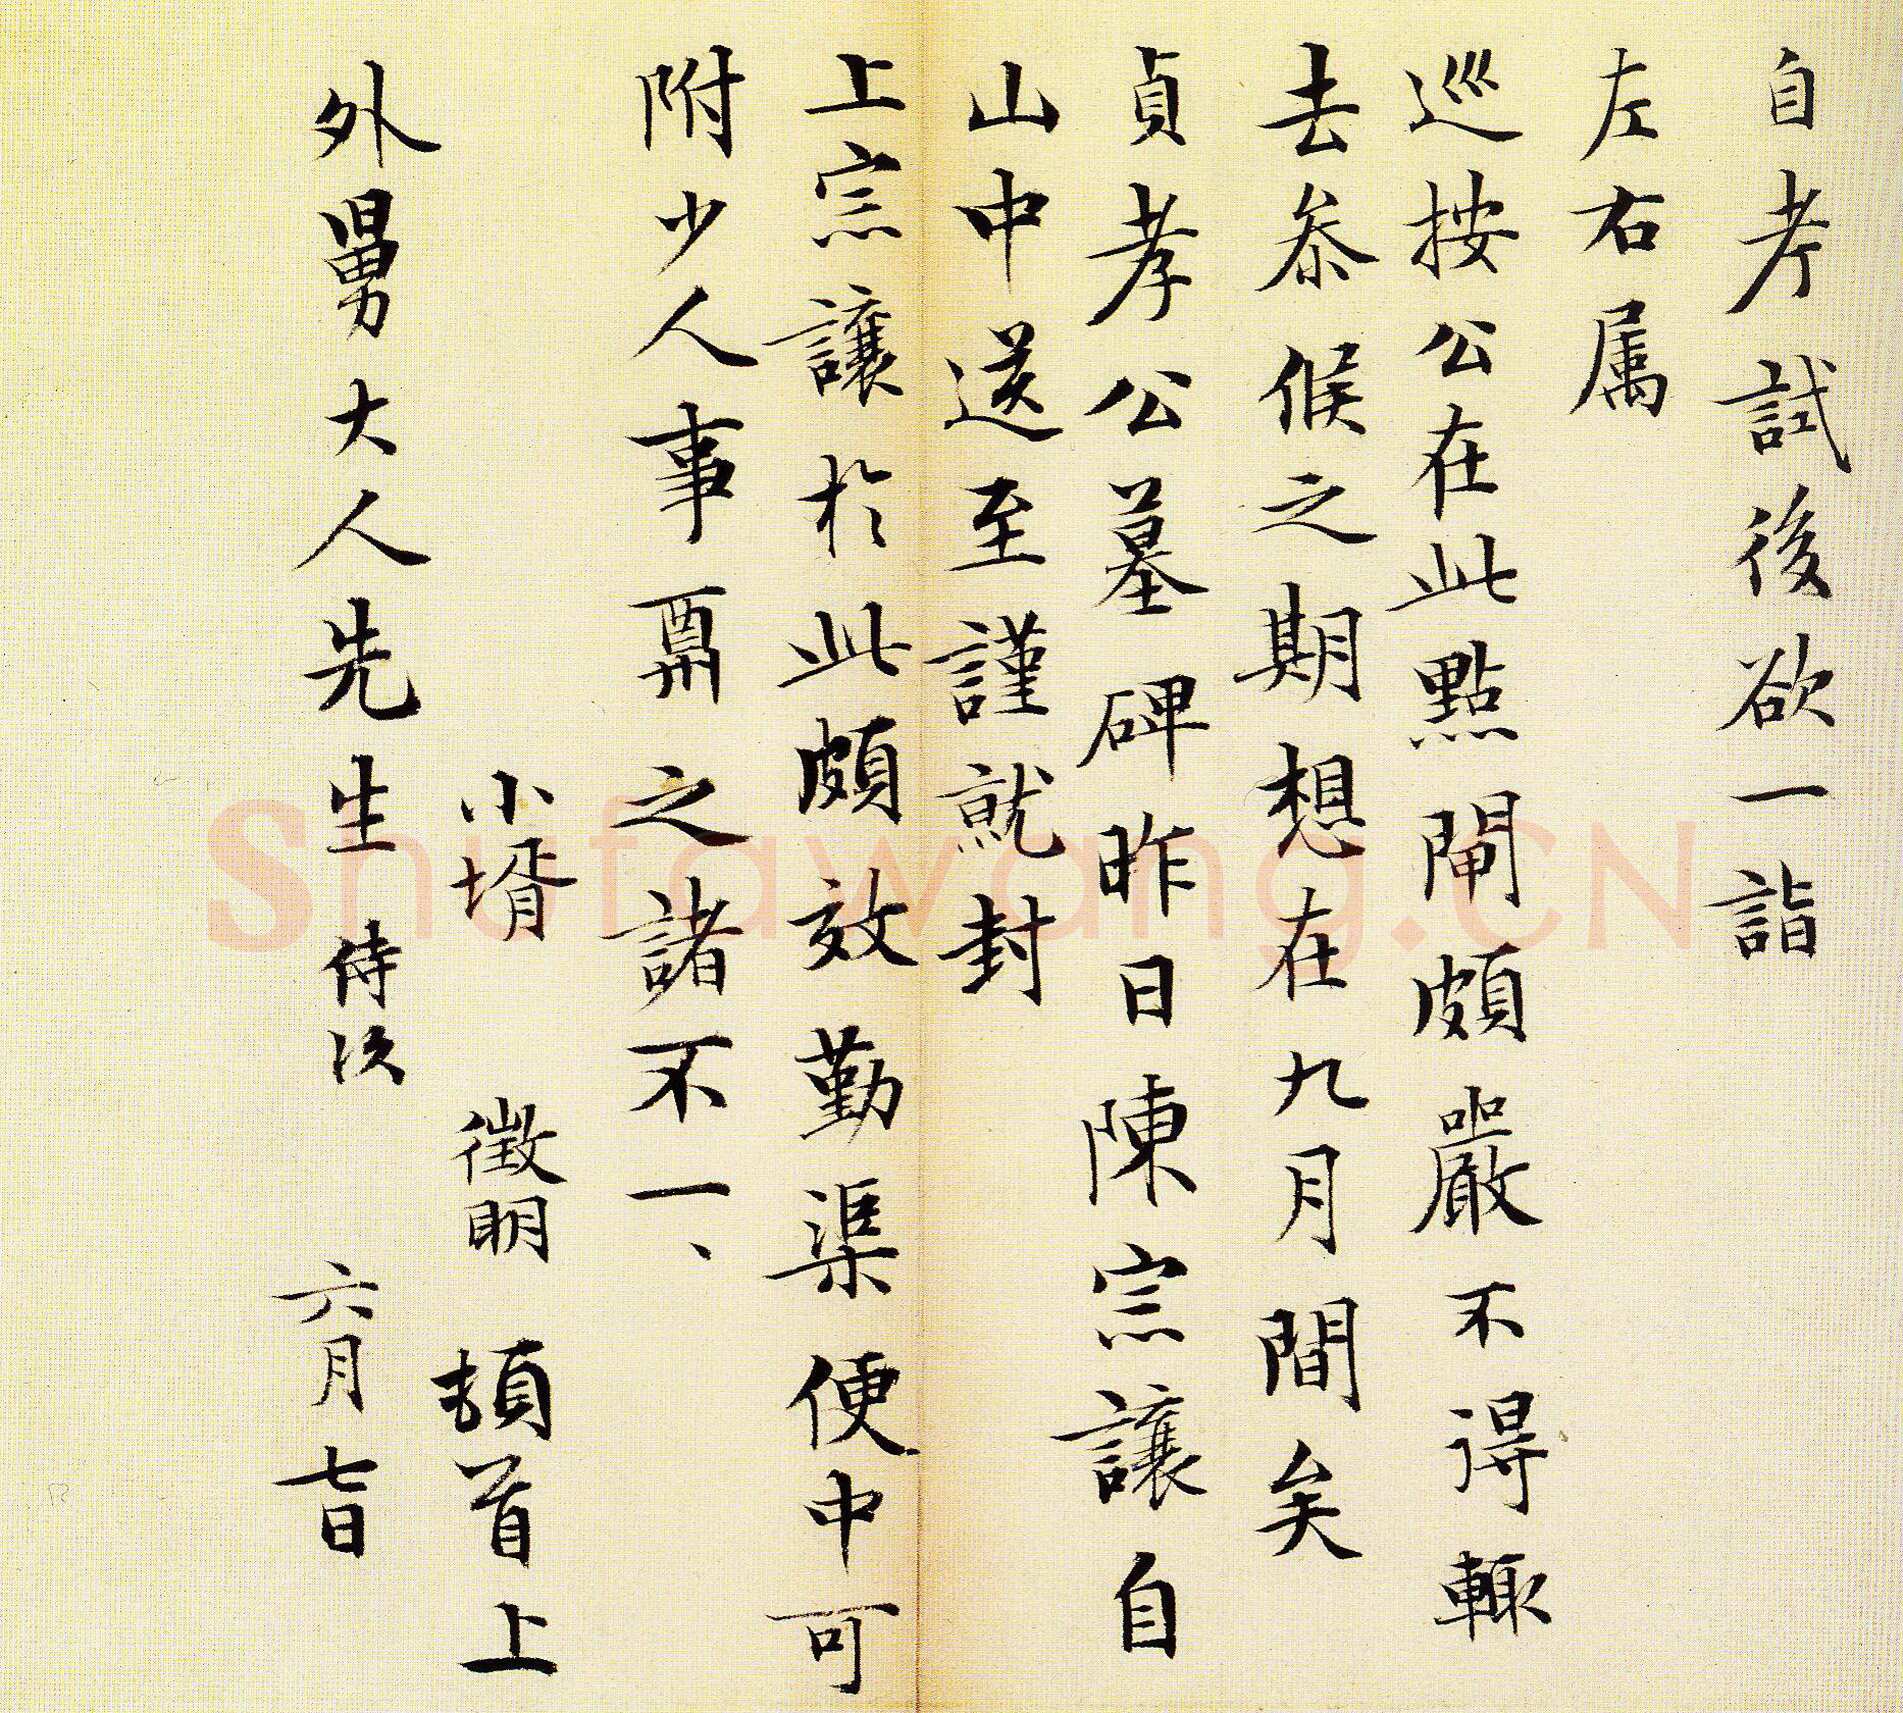 自考試後欲一詣
左右属
巡按公在此點閘頗嚴不得輙
去叅候之期想在九月間矣
貞孝公墓碑昨日陳宗讓自
山中送至謹就封
上宗讓於此頗效勤渠便中可
附少人事酬之諸不一、
小壻 徵明 頓首上
外舅大人先生侍次 六月七日
Shufawang.CN